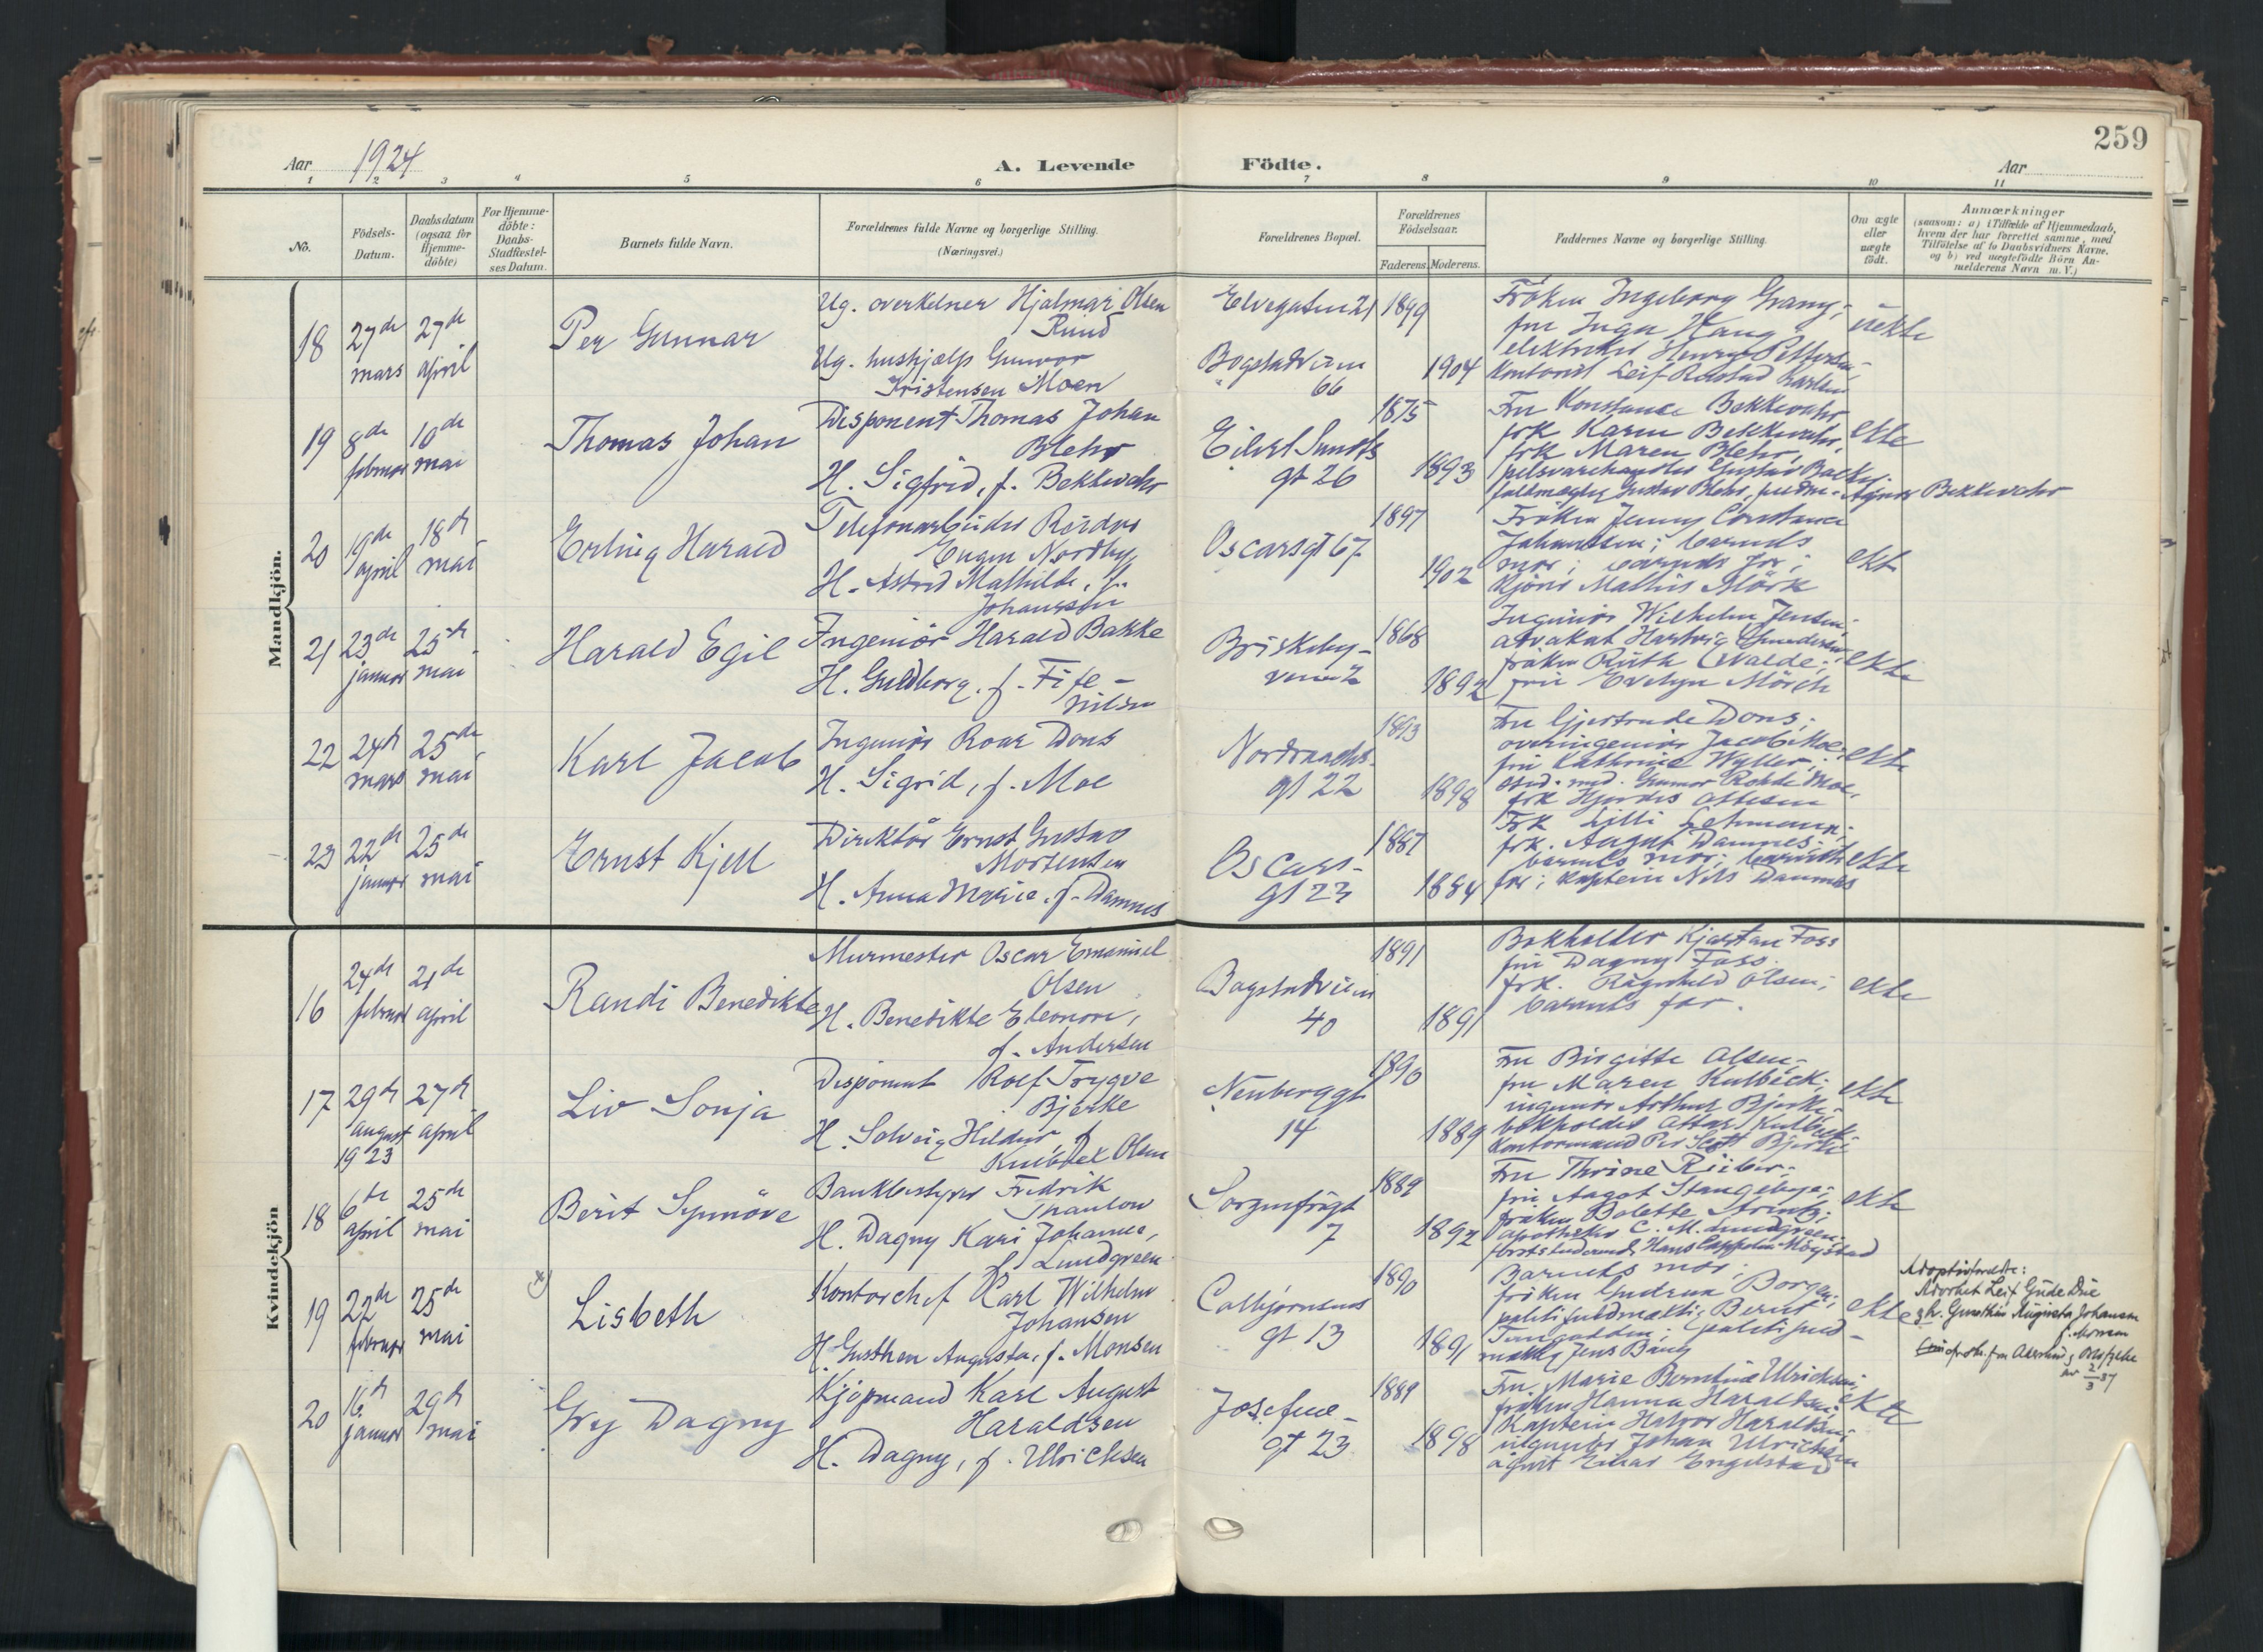 259
Aar 1924
A. Levende Födte.
Aar
1 2 3 4 5 6 7 8 9 10 11
No.
Födsels-Datum.
Daabsdatum (ogsaa for Hjemme-döbte)
For Hjemme-döbte: Daabs-Stadfæstel-ses Datum.
Barnets fulde Navn.
Forældrenes fulde Navne og borgerlige Stilling.
(Næringsvei.)
Forældrenes Bopæl.
Forældrenes Födselsaar.
Faderens. Moderens.
Faddernes Navne og borgerlige Stilling.
Om ægte eller uægte födt.
Anmærkninger
(saasom: a) i Tilfælde af Hjemmedaab, hvem der har forrettet samme, med Tilföielse af to Daabsvidners Navne, og b) ved uægtefödte Börn An-melderens Navn m. V.)
Mandkjön.
18 27de mars 27de april
Per Gunnar
Ug. overkelner Hjalmar Olsen
Ruud
Ug. hushjælp Gunvor
Kristensen Moen
Elvegaten 21
Bogstadveien
66
1899
1904
Fröken Ingeborg Grany;
fru Inga Haug
elektriker Henry Pettersen;
kontorist Leif Rustad Karlsen
uekte
19 8de februar 10de mai
Thomas Johan
Disponent Thomas Johan
Blehr
H. Sigfrid, f. Bekkevahr
Eilert Sundts
gt 26
1875
1893
Fru Konstance Bekkevahr
frk Karen Bekkevahr,
frk Maren Blehr,
pelsvarehandler Gustav Backer
Gustav Blehr, Agnar Bekkevahr
ekte
20 19de april 18de mai
Erling Harald
Telefonarbeider Reidar
Eugen Nordby
H. Astrid Mathilde, f.
Johanssen
Oscarsgt 67
1897
1902
Fröken Jenny Constance
Johanssen; barnets
mor; barnets far;
Mathis Mörk
ekte
21 23de januar 25de mai
Harald Egil
Ingeniör Harald Bakke
H. Guldborg, f. Fife-
nilsen
Briskeby-
veien 2
1868
1892
Ingeniör Wilhelm Jensen;
advokat Hartvig
fröken Ruth Walde;
fru Evelyn Mörch
ekte
22 24de mars 25de mai
Karl Jacob
Ingeniör Roar Dons
H. Sigrid, f. Moe
Nordraachs
gt 22
1893
1898
Fru Gjertrude Dons;
overingeniör Jacob Moe;
fru Kathrine Wyller;
stud. med. Gunnar Rohde Moe;
frk Hjördis Ottesen
ekte
23 22de januar 25de mai
Ernst Kjell
Direktör Ernst Gustav
Mortensen
H. Anna Marie, f. Damnes
Oscars-
gt 23
1887
1884
Frk Lilli Lehmann;
frk. Aagot Damnes;
barnets mor; barnets
far; kaptein Nils Damnes
ekte
Kvindekjön
16 24de februar 21de april
Randi Benedikte
Murmester Oscar Emanuel
Olsen
H. Benedikte Eleonore,
f. Andersen
Bogstadveien
40
1891
1891
Bokholder Kjartan Foss
fru Dagny Foss.
frk. Ragnhild Olsen;
barnets far.
ekte
17 29de august 1923 27de april
Liv Sonja
Disponent Rolf Trygve
Bjerke
H. Solveig Hildur f
Kulbeck Olsen
Neuberggt
14
1890
1889
Fru Birgitte Olsen;
fru Maren Kulbeck;
ingeniör Arthur Bjerke;
bokholder Ottar Kulbeck
kontormand Per Scott Bjerke
ekte
18 6te april 25de mai
Berit Synnöve
Bankbestyrer Fredrik
Thaulow
H. Dagny Kari Johanne,
f. Lundgreen
Sorgenfrigt
7
1889
1892
Fru Thrine Rieber;
fru Aagot Stangebye;
fröken Bolette Strintz;
apotheker C. M. Lundgreen;
forststuderende Hans Cappelen Möystad
ekte
19 22de februar 25de mai
Lisbeth
Kontorchef Karl Wilhelm
Johansen
H. Gusthen Augusta, f. Monsen
Colbjörnsens
gt 13
1890
1891
Barnets mor;
fröken Gudrun Borgen;
politifuldmektig Bernt
politifuld-
mektig Jens Bang
ekte
Adoptivforeldre:
Advokat Leif Gude Due
og h. Gusthen Augusta Johansen
f. Monsen
av 2/3 37
20 16de januar 29de mai
Gry Dagny
Kjöpmand Karl August
Haraldsen
H. Dagny, f. Ulrichsen
Josefine-
gt 23
1889
1898
Fru Marie Berntine Ulrichsen;
fröken Hanna Haraldsen;
kaptein Halvor Haraldsen;
ingeniör Johan Ulrichsen
agent Einar Engelstad
ekte